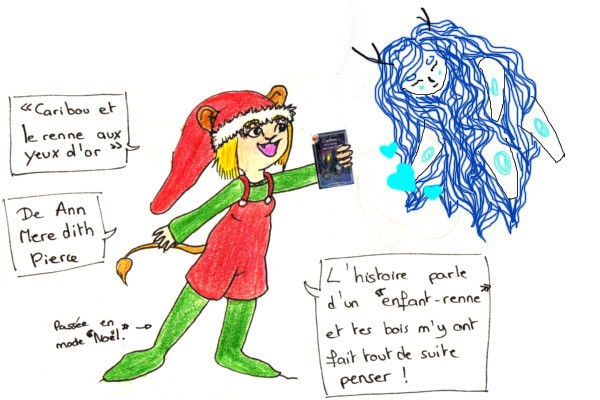 "Caribou et
le renne aux
yeux d'or"
De Ann
Meredith
Pierce
Passée en
mode "Noël."
L'histoire parle
d'un "enfant-renne"
et tes bois m'y ont
fait tout de suite
penser !